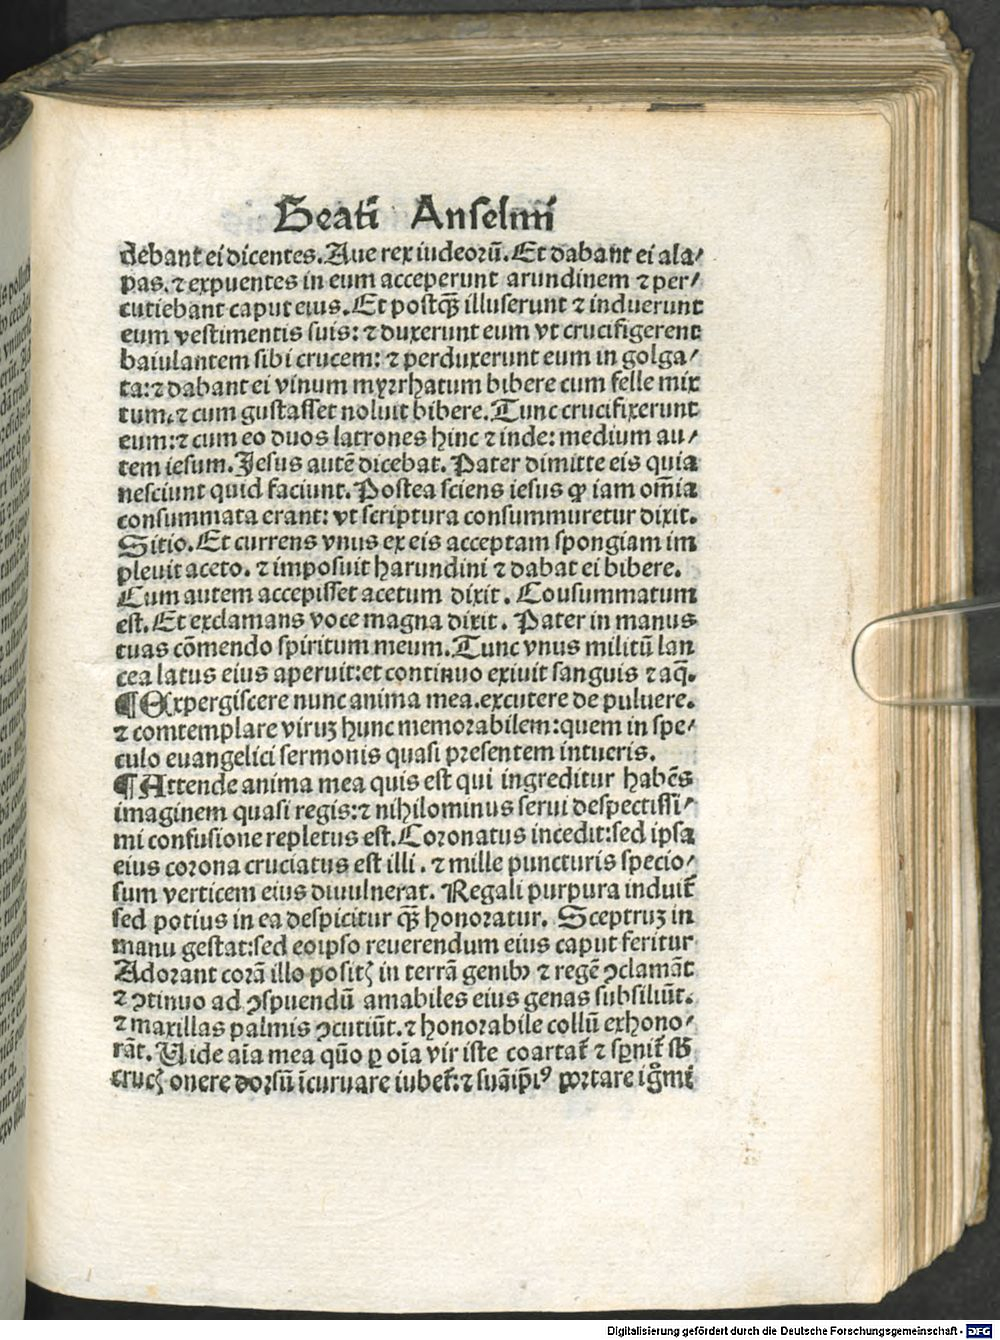 Beati Anselmi
debant ei dicentes. Aue rex iudeorū. Et dabant ei ala⸗
pas. ⁊ expuentes in eum acceperunt arundinem ⁊ per⸗
cutiebant caput eius. Et postqꝫ̄ illuserunt ⁊ induerunt
eum vestimentis suis: ⁊ duxerunt eum vt crucifigerent
baiulantem sibi crucem: ⁊ perduxerunt eum in golga⸗
ta: ⁊ dabant ei vinum myrrhatum bibere cum felle mix
tum. ⁊ cum gustasset noluit bibere. Tunc crucifixerunt
eum: ⁊ cum eo duos latrones hinc ⁊ inde: medium au⸗
tem iesum. Jesus autē dicebat. Pater dimitte eis quia
nesciunt quid faciunt. Postea sciens iesus ꝙ iam om̄ia
consummata erant: vt scriptura consummuretur dixit.
Sitio. Et currens vnus ex eis acceptam spongiam im
pleuit aceto. ⁊ imposuit harundini ⁊ dabat ei bibere.
Cum autem accepisset acetum dixit. Cousummatum
est. Et exclamans voce magna dixit. Pater in manus
tuas cōmendo spiritum meum. Tunc vnus militū lan
cea latus eius aperuit: et continuo exiuit sanguis ⁊ aq̄.
¶ Expergiscere nunc anima mea. excutere de puluere.
⁊ comtemplare viruꝫ hunc memorabilem: quem in spe⸗
culo euangelici sermonis quasi presentem intueris.
¶ Attende anima mea quis est qui ingreditur habēs
imaginem quasi regis: ⁊ nihilominus serui despectissi⸗
mi confusione repletus est. Coronatus incedit: sed ipsa
eius corona cruciatus est illi. ⁊ mille puncturis specio⸗
sum verticem eius diuulnerat. Regali purpura induit̄
sed potius in ea despicitur qꝫ̄ honoratur. Sceptruꝫ in
manu gestat: sed eoipso reuerendum eius caput feritur
Adorant corā illo positꝭ in terrā genibꝰ ⁊ regē ↄclamāt
⁊ ↄtinuo ad ↄspuendū amabiles eius genas subsiliūt.
⁊ maxillas palmis ↄcutiūt. ⁊ honorabile collū exhono⸗
rāt. Uide aīa mea quō ꝑ oīa vir iste coartat̄ ⁊ sꝑnit̄ sb̄
crucꝭ onere dorsū īcuruare iubet̄: ⁊ suāip̄iꝰ portare iḡmī